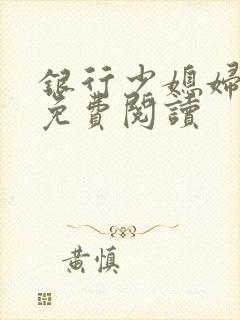 銀行少媳婦
免費閱讀
黃慎